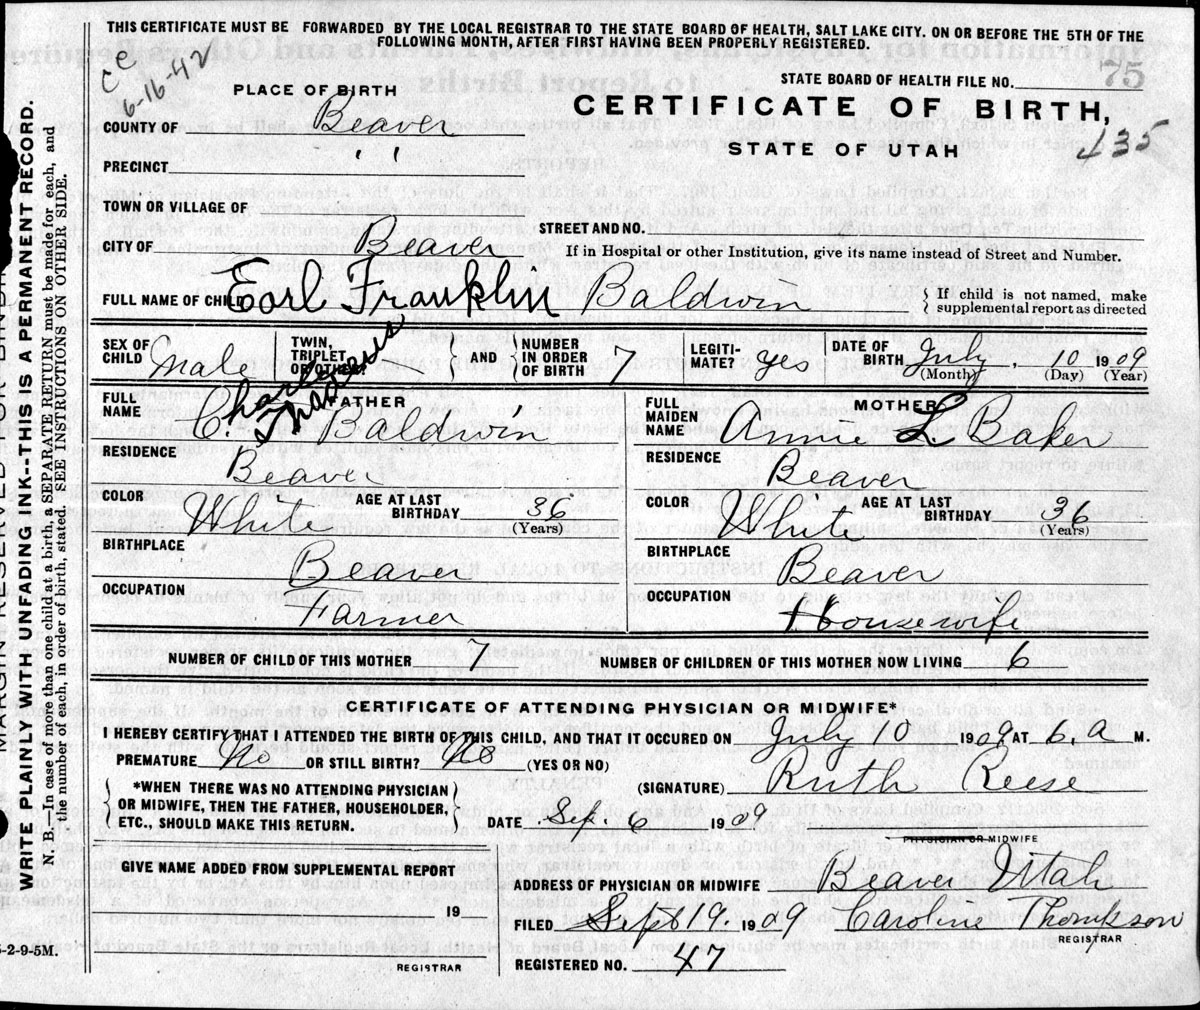 THIS CERTIFICATE MUST BE FORWARDED BY THE LOCAL REGISTRAR TO THE STATE BOARD OF HEALTH, SALT LAKE CITY. ON OR BEFORE THE 5TH OF THE
FOLLOWING MONTH, AFTER FIRST HAVING BEEN PROPERLY REGISTERED.
CC
6-16-42
75
STATE BOARD OF HEALTH FILE NO.
PLACE OF BIRTH
CERTIFICATE OF BIRTH,
COUNTY OF Beaver
STATE OF UTAH
435
PRECINCT " "
TOWN OR VILLAGE OF
STREET AND NO.
CITY OF Beaver
If in Hospital or other Institution, give its name instead of Street and Number.
FULL NAME OF CHILD Earl Franklin Baldwin
If child is not named, make
supplemental report as directed
SEX OF CHILD Male
TWIN, TRIPLET OR OTHER? AND NUMBER IN ORDER OF BIRTH 7
LEGITIMATE? yes
DATE OF BIRTH July, 10 1909
(Month) (Day) (Year)
FATHER
FULL NAME C. Baldwin
Charles
MOTHER
FULL MAIDEN NAME Annie L. Baker
RESIDENCE Beaver
RESIDENCE Beaver
COLOR White AGE AT LAST BIRTHDAY 36 (Years)
COLOR White AGE AT LAST BIRTHDAY 36 (Years)
BIRTHPLACE Beaver
BIRTHPLACE Beaver
OCCUPATION Farmer
OCCUPATION Housewife
NUMBER OF CHILD OF THIS MOTHER 7 NUMBER OF CHILDREN OF THIS MOTHER NOW LIVING 6
CERTIFICATE OF ATTENDING PHYSICIAN OR MIDWIFE*
I HEREBY CERTIFY THAT I ATTENDED THE BIRTH OF THIS CHILD, AND THAT IT OCCURED ON July 10 1909 AT 6, A M.
PREMATURE No OR STILL BIRTH? No (YES OR NO)
(SIGNATURE) Ruth Reese
*WHEN THERE WAS NO ATTENDING PHYSICIAN
OR MIDWIFE, THEN THE FATHER, HOUSEHOLDER,
ETC., SHOULD MAKE THIS RETURN.
DATE Sep 6 1909
OR MIDWIFE
GIVE NAME ADDED FROM SUPPLEMENTAL REPORT
ADDRESS OF PHYSICIAN OR MIDWIFE Beaver Utah
19
FILED Sept 19. 1909 Caroline Thompson
REGISTRAR
REGISTRAR
REGISTERED NO. 47
WRITE PLAINLY WITH UNFADING INK--THIS IS A PERMANENT RECORD.
N. B.—In case of more than one child at a birth, a SEPARATE RETURN must be made for each, and
the number of each, in order of birth, stated. SEE INSTRUCTIONS ON OTHER SIDE.
-2-9-5M.